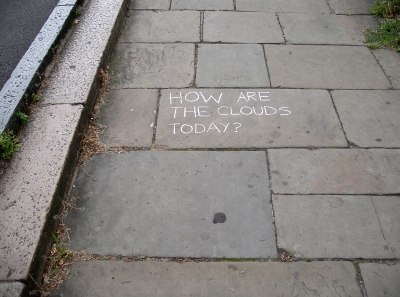 HOW ARE
THE CLOUDS
TODAY?